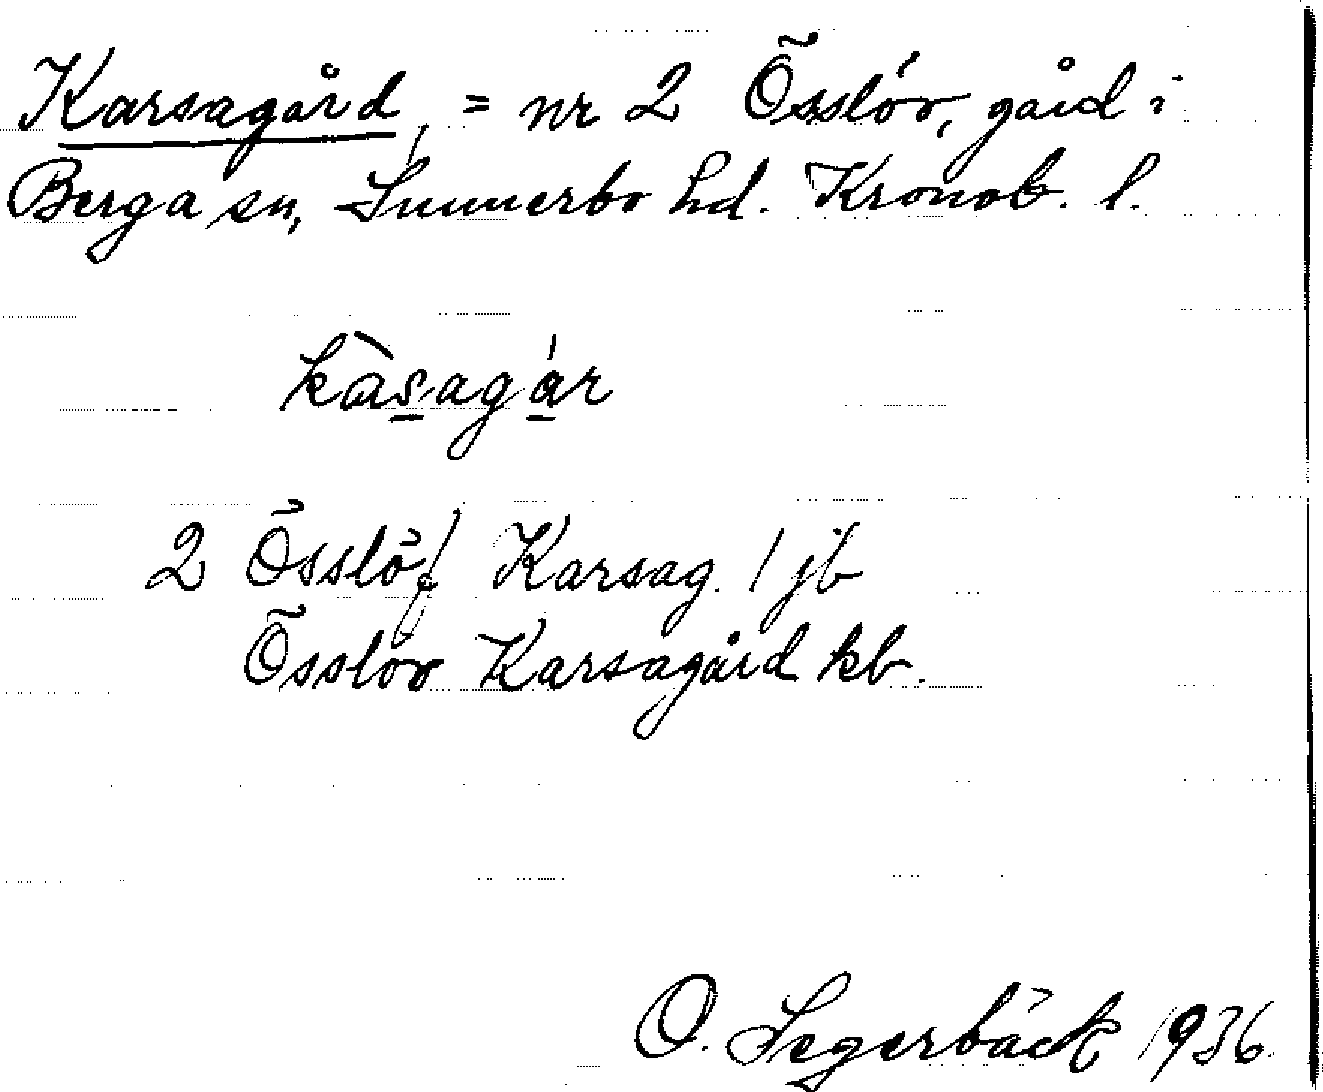 Karsagård, = nr 2 Össlöv, gård i
Berga sn, Sunnerbo hd. Kronob. l.
kàsagár
2 Össlöf Karsag. / jb
Össlöv Karsagård kb.
O. Segerbäck 1936